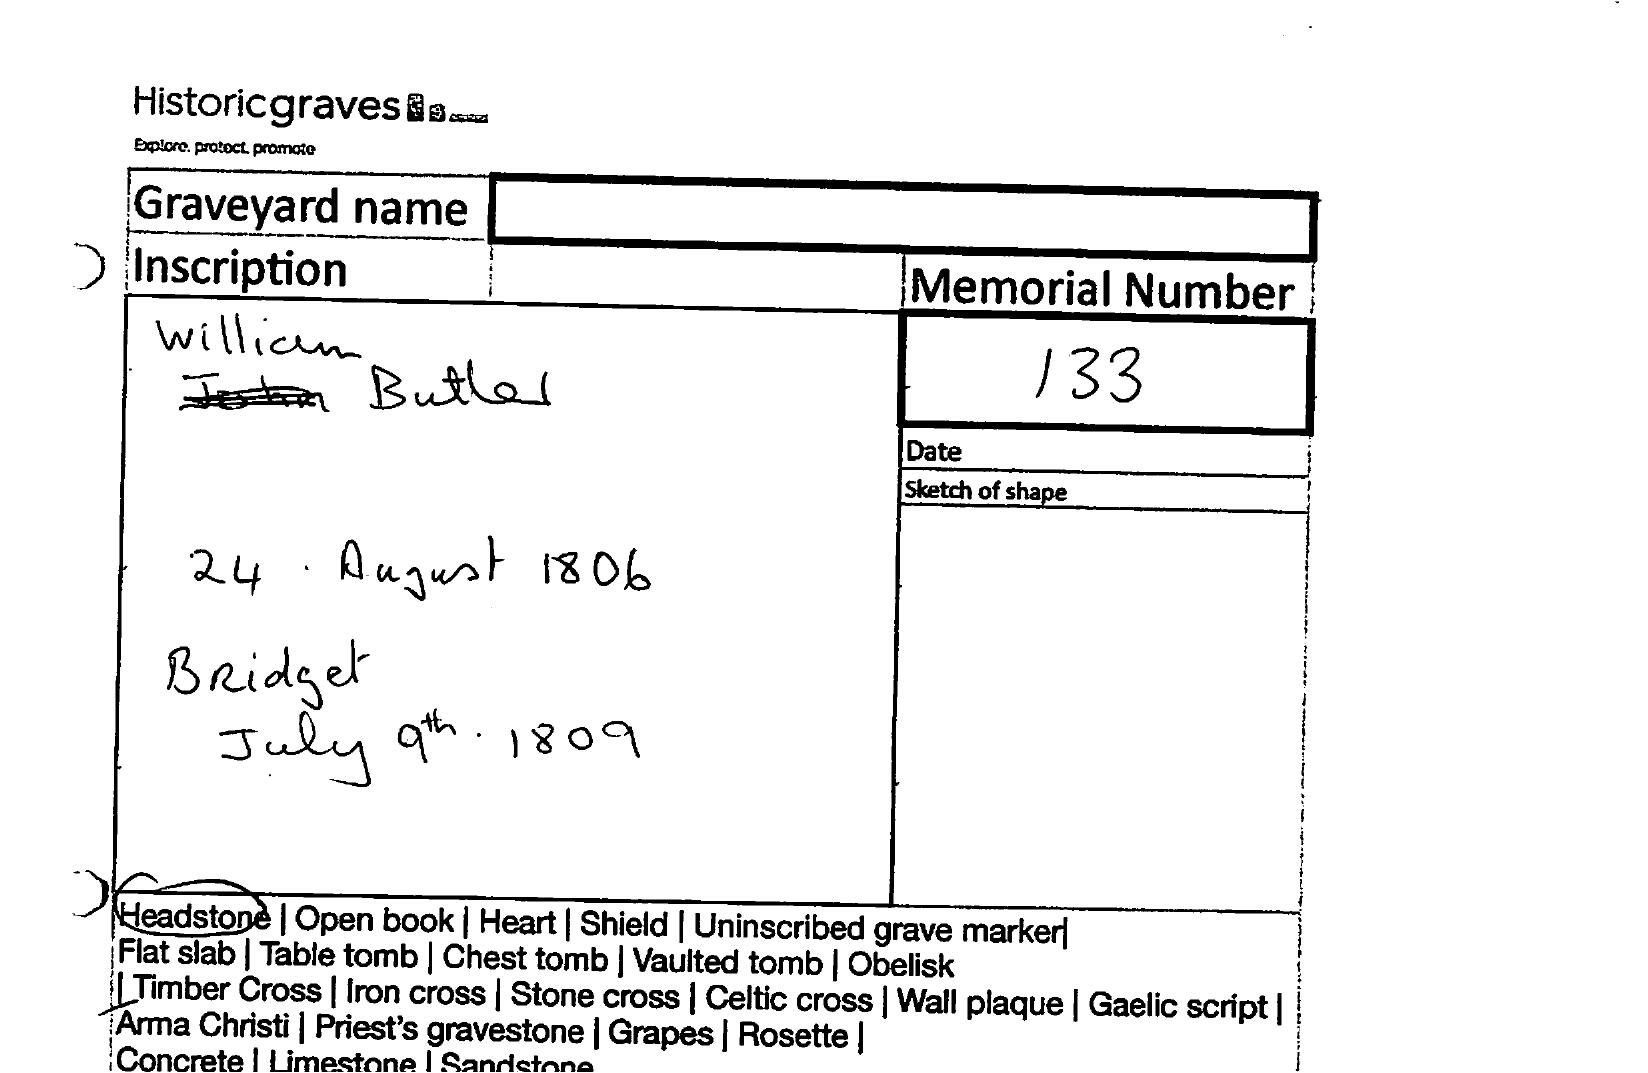 Historicgraves
Explore. protect. promote
Graveyard name
Inscription
Memorial Number
William
John Butler
133
Date
Sketch of shape
24 . August 1806
Bridget
July 9th . 1809
Headstone | Open book | Heart | Shield | Uninscribed grave marker|
Flat slab | Table tomb | Chest tomb | Vaulted tomb | Obelisk
| Timber Cross | Iron cross | Stone cross | Celtic cross | Wall plaque | Gaelic script |
Arma Christi | Priest's gravestone | Grapes | Rosette |
Concrete | Limestone | Sandstone